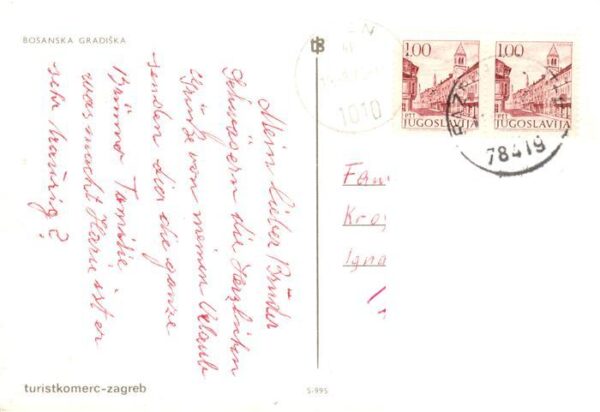 BOSANSKA GRADIŠKA
Mein lieber Brüder
Schwägern die Herzlichen
Grüße von meinen Urlaub
senden dir die ganze
Brünno Familie
was macht Hari ist er
sehr traurig?
turistkomerc-zagreb
S-995
1010
1.00
JUGOSLAVIJA
1.00
JUGOSLAVIJA
78419